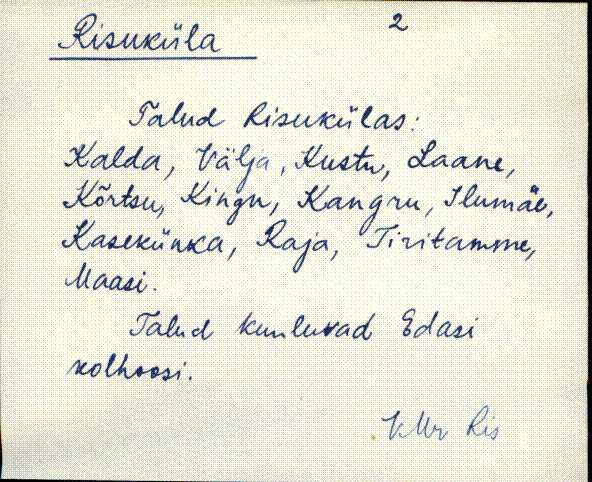 Risuküla 2
Talud Risukülas:
Kalda, Välja, Kustu, Laane,
Kõrtsu, Kingu, Kangru, Ilumäe,
Kasekünka, Raja, Tiritamme,
Maasi.
Talud kuuluvad Edasi
kolhoosi.
KMr Ris